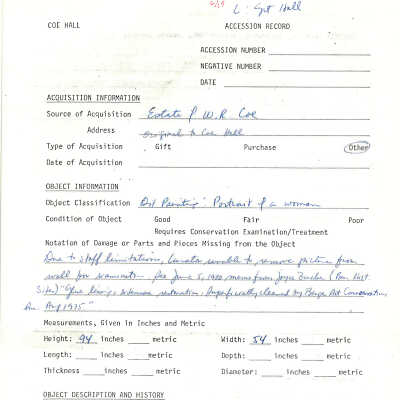 L. Gst Hall
COE HALL
ACCESSION RECORD
ACCESSION NUMBER
NEGATIVE NUMBER
DATE
ACQUISITION INFORMATION
Source of Acquisition Estate of W.R. Coe
Address original to Coe Hall
Type of Acquisition Gift Purchase Other
Date of Acquisition
OBJECT INFORMATION
Object Classification Oil Painting: Portrait of a woman
Condition of Object Good Fair Poor
Requires Conservation Examination/Treatment
Notation of Damage or Parts and Pieces Missing from the Object
Due to staff limitations, curator unable to remove picture from
wall for examination - See June 5, 1980 memo from Joyce
Sites) restoration, cleaned by Art Conservation,
Inc. Aug 1975"
Measurements, Given in Inches and Metric
Height: 94 inches metric Width: 54 inches metric
Length: inches metric Depth: inches metric
Thickness inches metric Diameter: inches metric
OBJECT DESCRIPTION AND HISTORY